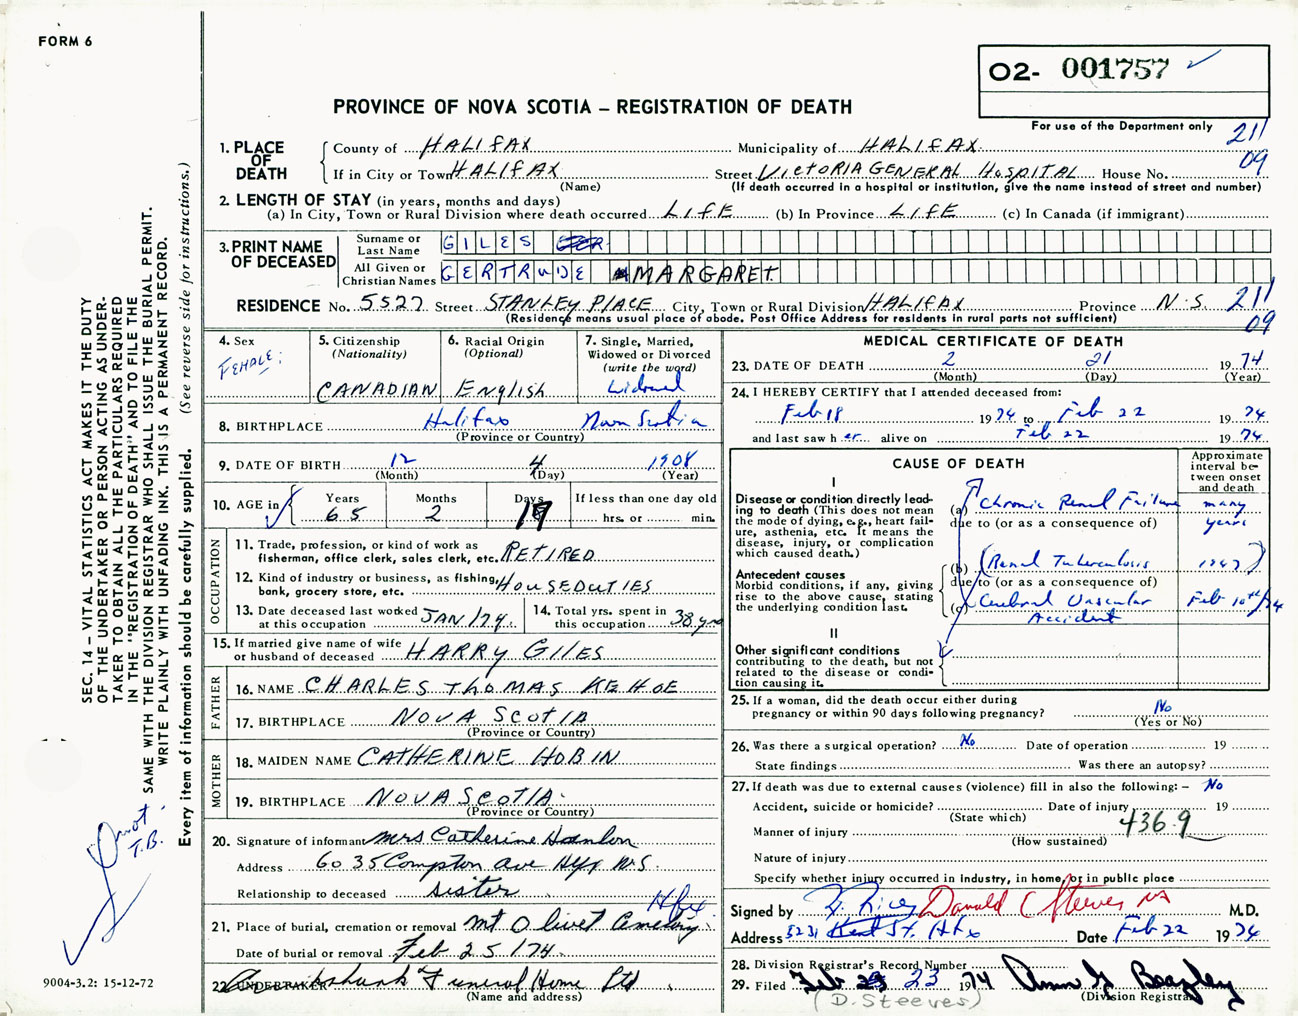 FORM 6
02- 001757
PROVINCE OF NOVA SCOTIA – REGISTRATION OF DEATH
For use of the Department only
211
09
1. PLACE OF DEATH
County of HALIFAX Municipality of HALIFAX
If in City or Town HALIFAX Street VICTORIA GENERAL HOSPITAL House No.
(Name) (If death occurred in a hospital or institution, give the name instead of street and number)
2. LENGTH OF STAY (in years, months and days)
(a) In City, Town or Rural Division where death occurred LIFE (b) In Province LIFE (c) In Canada (if immigrant)
3. PRINT NAME OF DECEASED
Surname or Last Name GILES
All Given or Christian Names GERTRUDE MARGARET
RESIDENCE No. 5527 Street STANLEY PLACE City, Town or Rural Division HALIFAX Province N.S. 211
09
(Residence means usual place of abode. Post Office Address for residents in rural parts not sufficient)
4. Sex
FEMALE
5. Citizenship
(Nationality)
CANADIAN
6. Racial Origin
(Optional)
English
7. Single, Married,
Widowed or Divorced
(write the word)
Widowed
8. BIRTHPLACE Halifax Nova Scotia
(Province or Country)
9. DATE OF BIRTH 12 4 1908
(Month) (Day) (Year)
10. AGE in
Years 65
Months 2
Days 17
If less than one day old
hrs. or min.
OCCUPATION
11. Trade, profession, or kind of work as
fisherman, office clerk, sales clerk, etc. RETIRED
12. Kind of industry or business, as fishing,
bank, grocery store, etc. HOUSEDUTIES
13. Date deceased last worked
at this occupation JAN/74
14. Total yrs. spent in
this occupation 38 yrs
15. If married give name of wife
or husband of deceased HARRY GILES
FATHER
16. NAME CHARLES THOMAS KEHOE
17. BIRTHPLACE NOVA SCOTIA
(Province or Country)
MOTHER
18. MAIDEN NAME CATHERINE HOBIN
19. BIRTHPLACE NOVA SCOTIA
(Province or Country)
20. Signature of informant Mrs Catherine Hanlon
Address 6035 Compton Ave Hfx N.S.
Relationship to deceased sister
Hfx
21. Place of burial, cremation or removal Mt Olivet Cemetery
Date of burial or removal Feb 25/74
22. UNDERTAKER Cruikshank Funeral Home Ltd
(Name and address)
MEDICAL CERTIFICATE OF DEATH
23. DATE OF DEATH 2 21 1974
(Month) (Day) (Year)
24. I HEREBY CERTIFY that I attended deceased from:
Feb 18 1974 to Feb 22 1974
and last saw her alive on Feb 22 1974
CAUSE OF DEATH
Approximate
interval be-
tween onset
and death
I
Disease or condition directly lead-
ing to death (This does not mean
the mode of dying, e.g., heart fail-
ure, asthenia, etc. It means the
disease, injury, or complication
which caused death.)
(a) Chronic Renal Failure many years
due to (or as a consequence of)
Antecedent causes
Morbid conditions, if any, giving
rise to the above cause, stating
the underlying condition last.
(b) (Renal Tuberculosis 1947)
due to (or as a consequence of)
(c) Cerebral Vascular Accident Feb 10th/74
II
Other significant conditions
contributing to the death, but not
related to the disease or condi-
tion causing it.
25. If a woman, did the death occur either during
pregnancy or within 90 days following pregnancy? No
(Yes or No)
26. Was there a surgical operation? No Date of operation 19
State findings Was there an autopsy?
27. If death was due to external causes (violence) fill in also the following: – No
Accident, suicide or homicide? Date of injury 19
(State which)
436.9
Manner of injury
(How sustained)
Nature of injury
Specify whether injury occurred in industry, in home, or in public place
Signed by Donald C Steeves M.D.
Address 5231 Kent St. Hfx Date Feb 22 1974
28. Division Registrar's Record Number
29. Filed Feb 23 1974
(D. Steeves) (Division Registrar)
SEC. 14 – VITAL STATISTICS ACT MAKES IT THE DUTY
OF THE UNDERTAKER OR PERSON ACTING AS UNDER-
TAKER TO OBTAIN ALL THE PARTICULARS REQUIRED
IN THE "REGISTRATION OF DEATH" AND TO FILE THE
SAME WITH THE DIVISION REGISTRAR WHO SHALL ISSUE THE BURIAL PERMIT.
WRITE PLAINLY WITH UNFADING INK. THIS IS A PERMANENT RECORD.
Every item of information should be carefully supplied. (See reverse side for instructions.)
not
T.B.
9004-3.2: 15-12-72